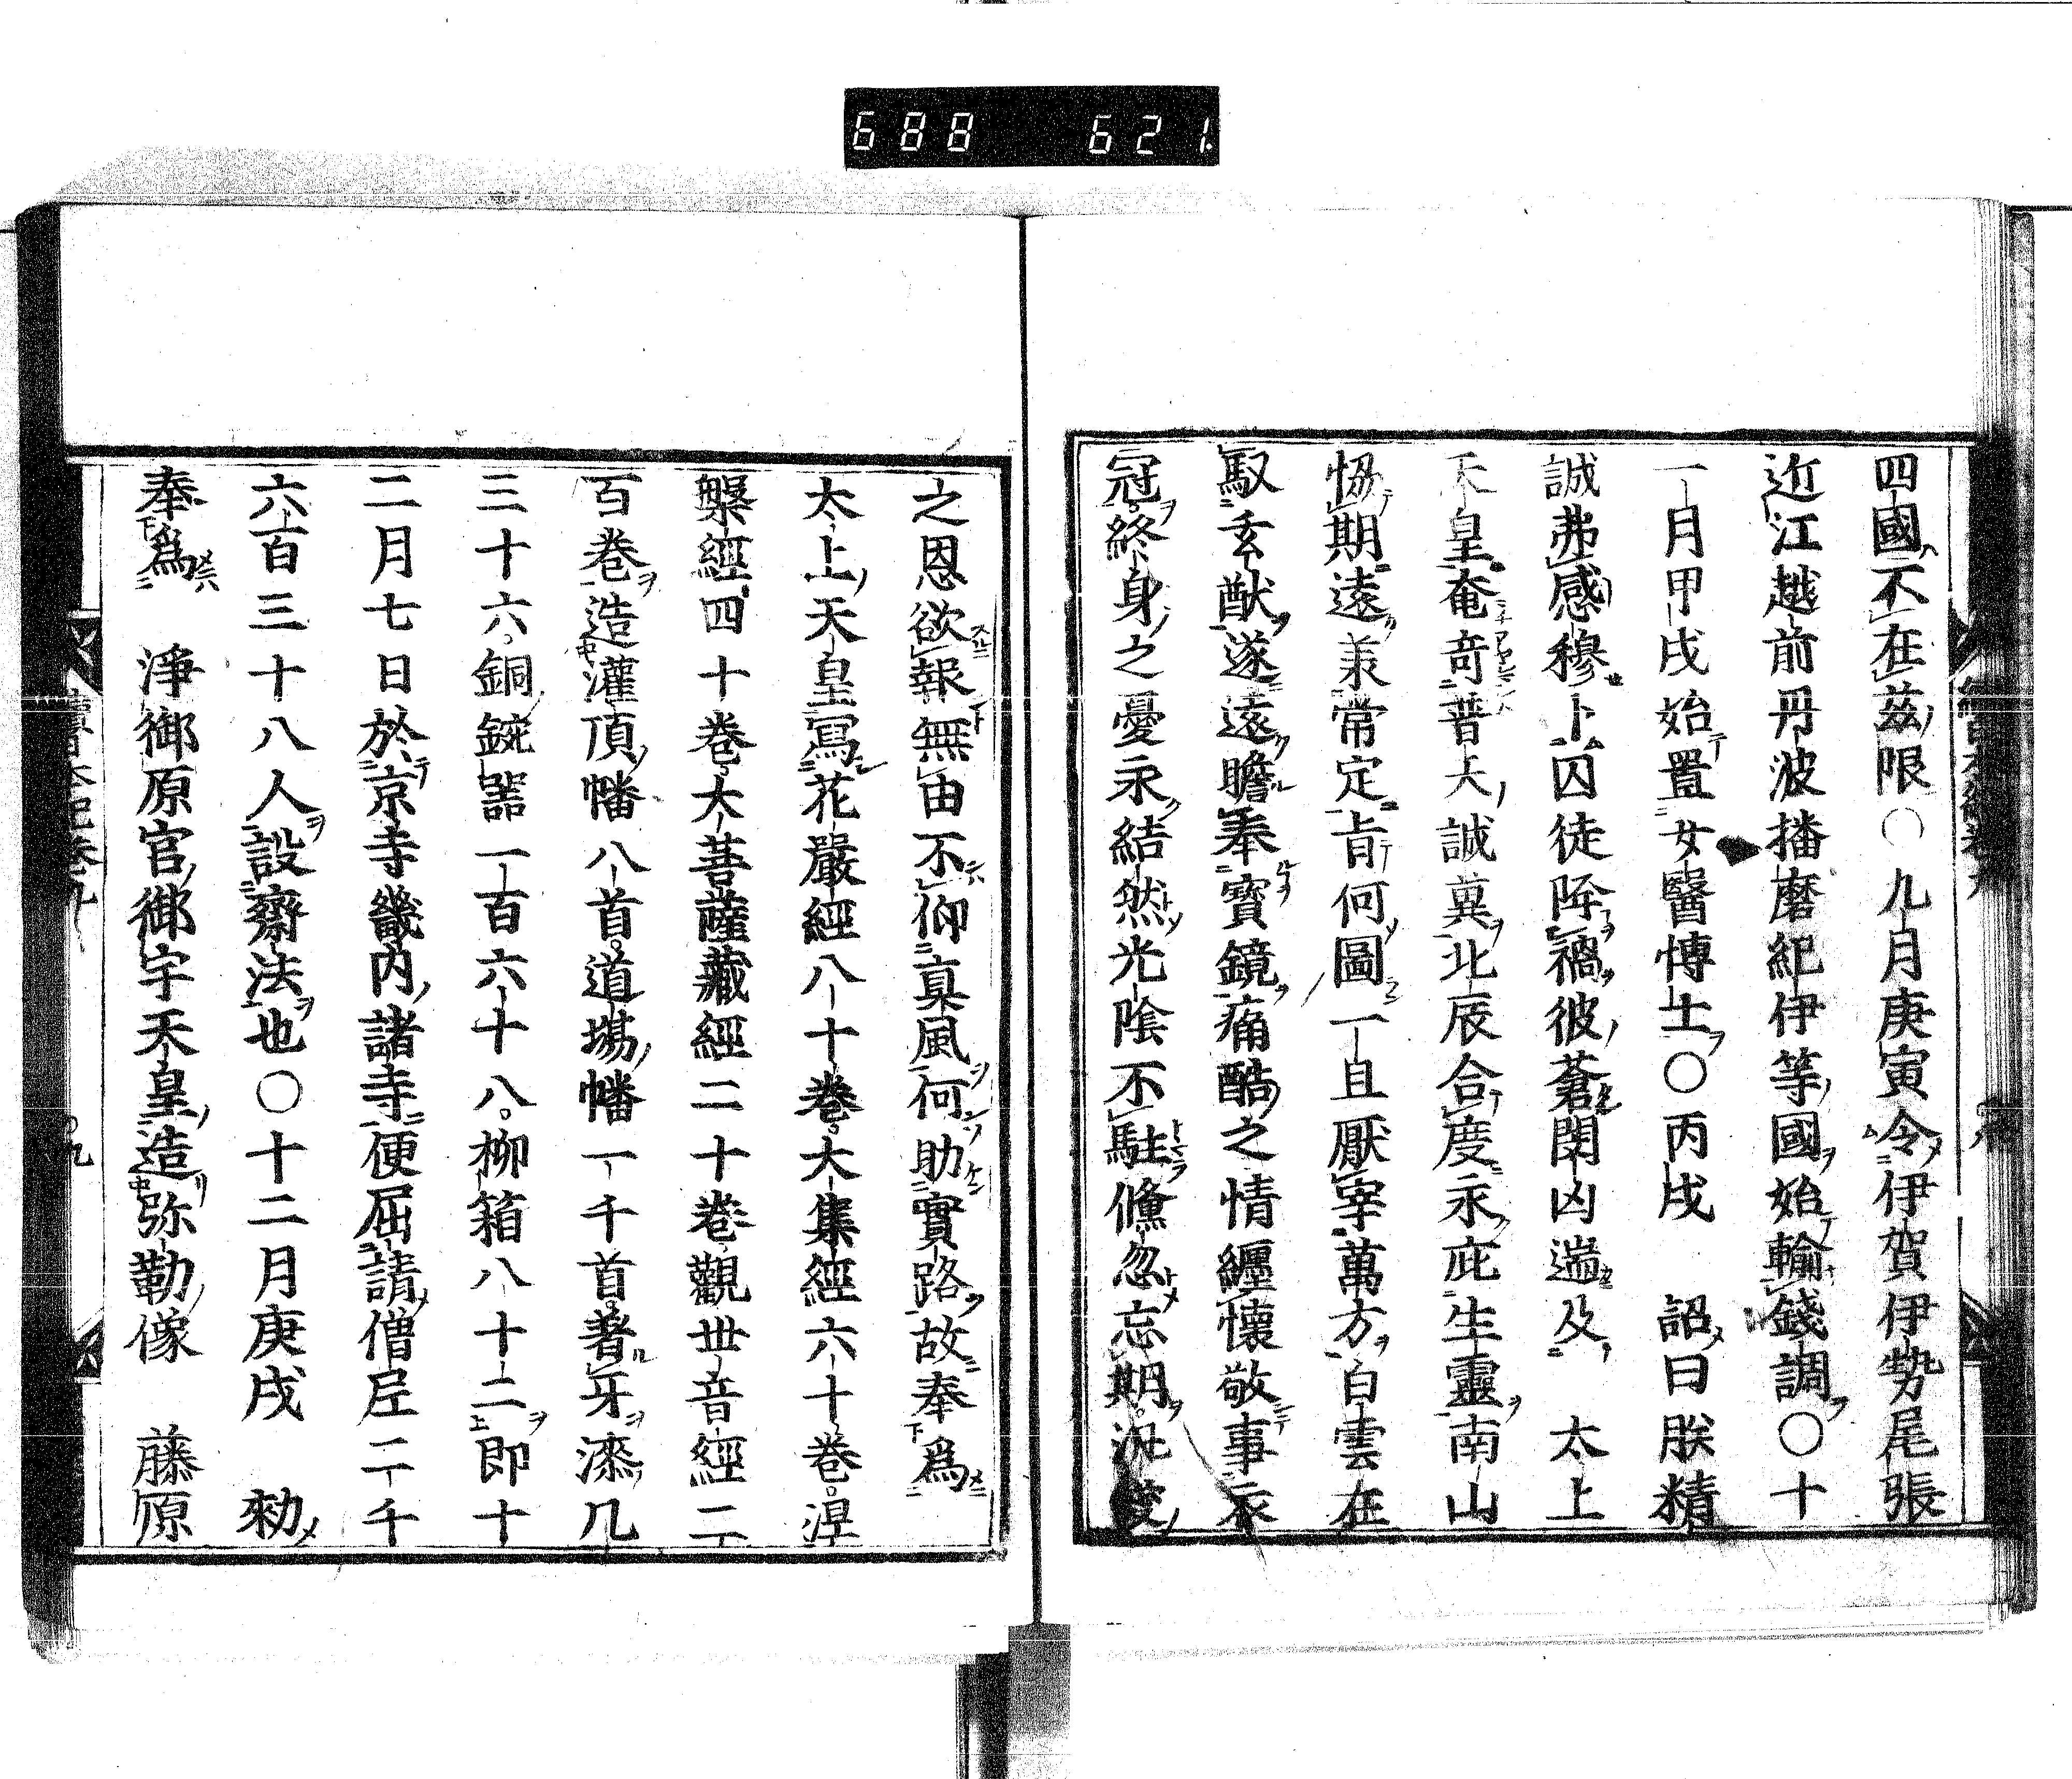 688 621.
四國不在茲限○九月庚寅令伊賀伊勢尾張
近江越前丹波播磨紀伊等國始輸錢調○十
一月甲戌始置女醫博士○丙戌 詔曰朕精
誠弗感穆卜囚徒降禍彼蒼閔凶遄及 太上
天皇奄奇普天誠冀北辰合度永庇生靈南山
恊期遠羕常定旹何圖一旦厭宰萬方白雲在
馭玄猷遂遠瞻奉寶鏡痛酷之情纒懷敬事衣
冠終身之憂永結然光陰不駐倏忽忘期汎愛
之恩欲報無由不仰眞風何助實路故奉爲
太上天皇寫花嚴經八十巻大集經六十巻涅
槃經四十巻大菩薩藏經二十巻觀世音經二
百巻造灌頂幡八首道塲幡一千首著牙漆几
三十六銅鋺噐一百六十八柳箱八十二即十
二月七日於京寺畿内諸寺便屈請僧尼二千
六百三十八人設齋法也○十二月庚戌 勑
奉爲 淨御原宮御宇天皇造弥勒像 藤原